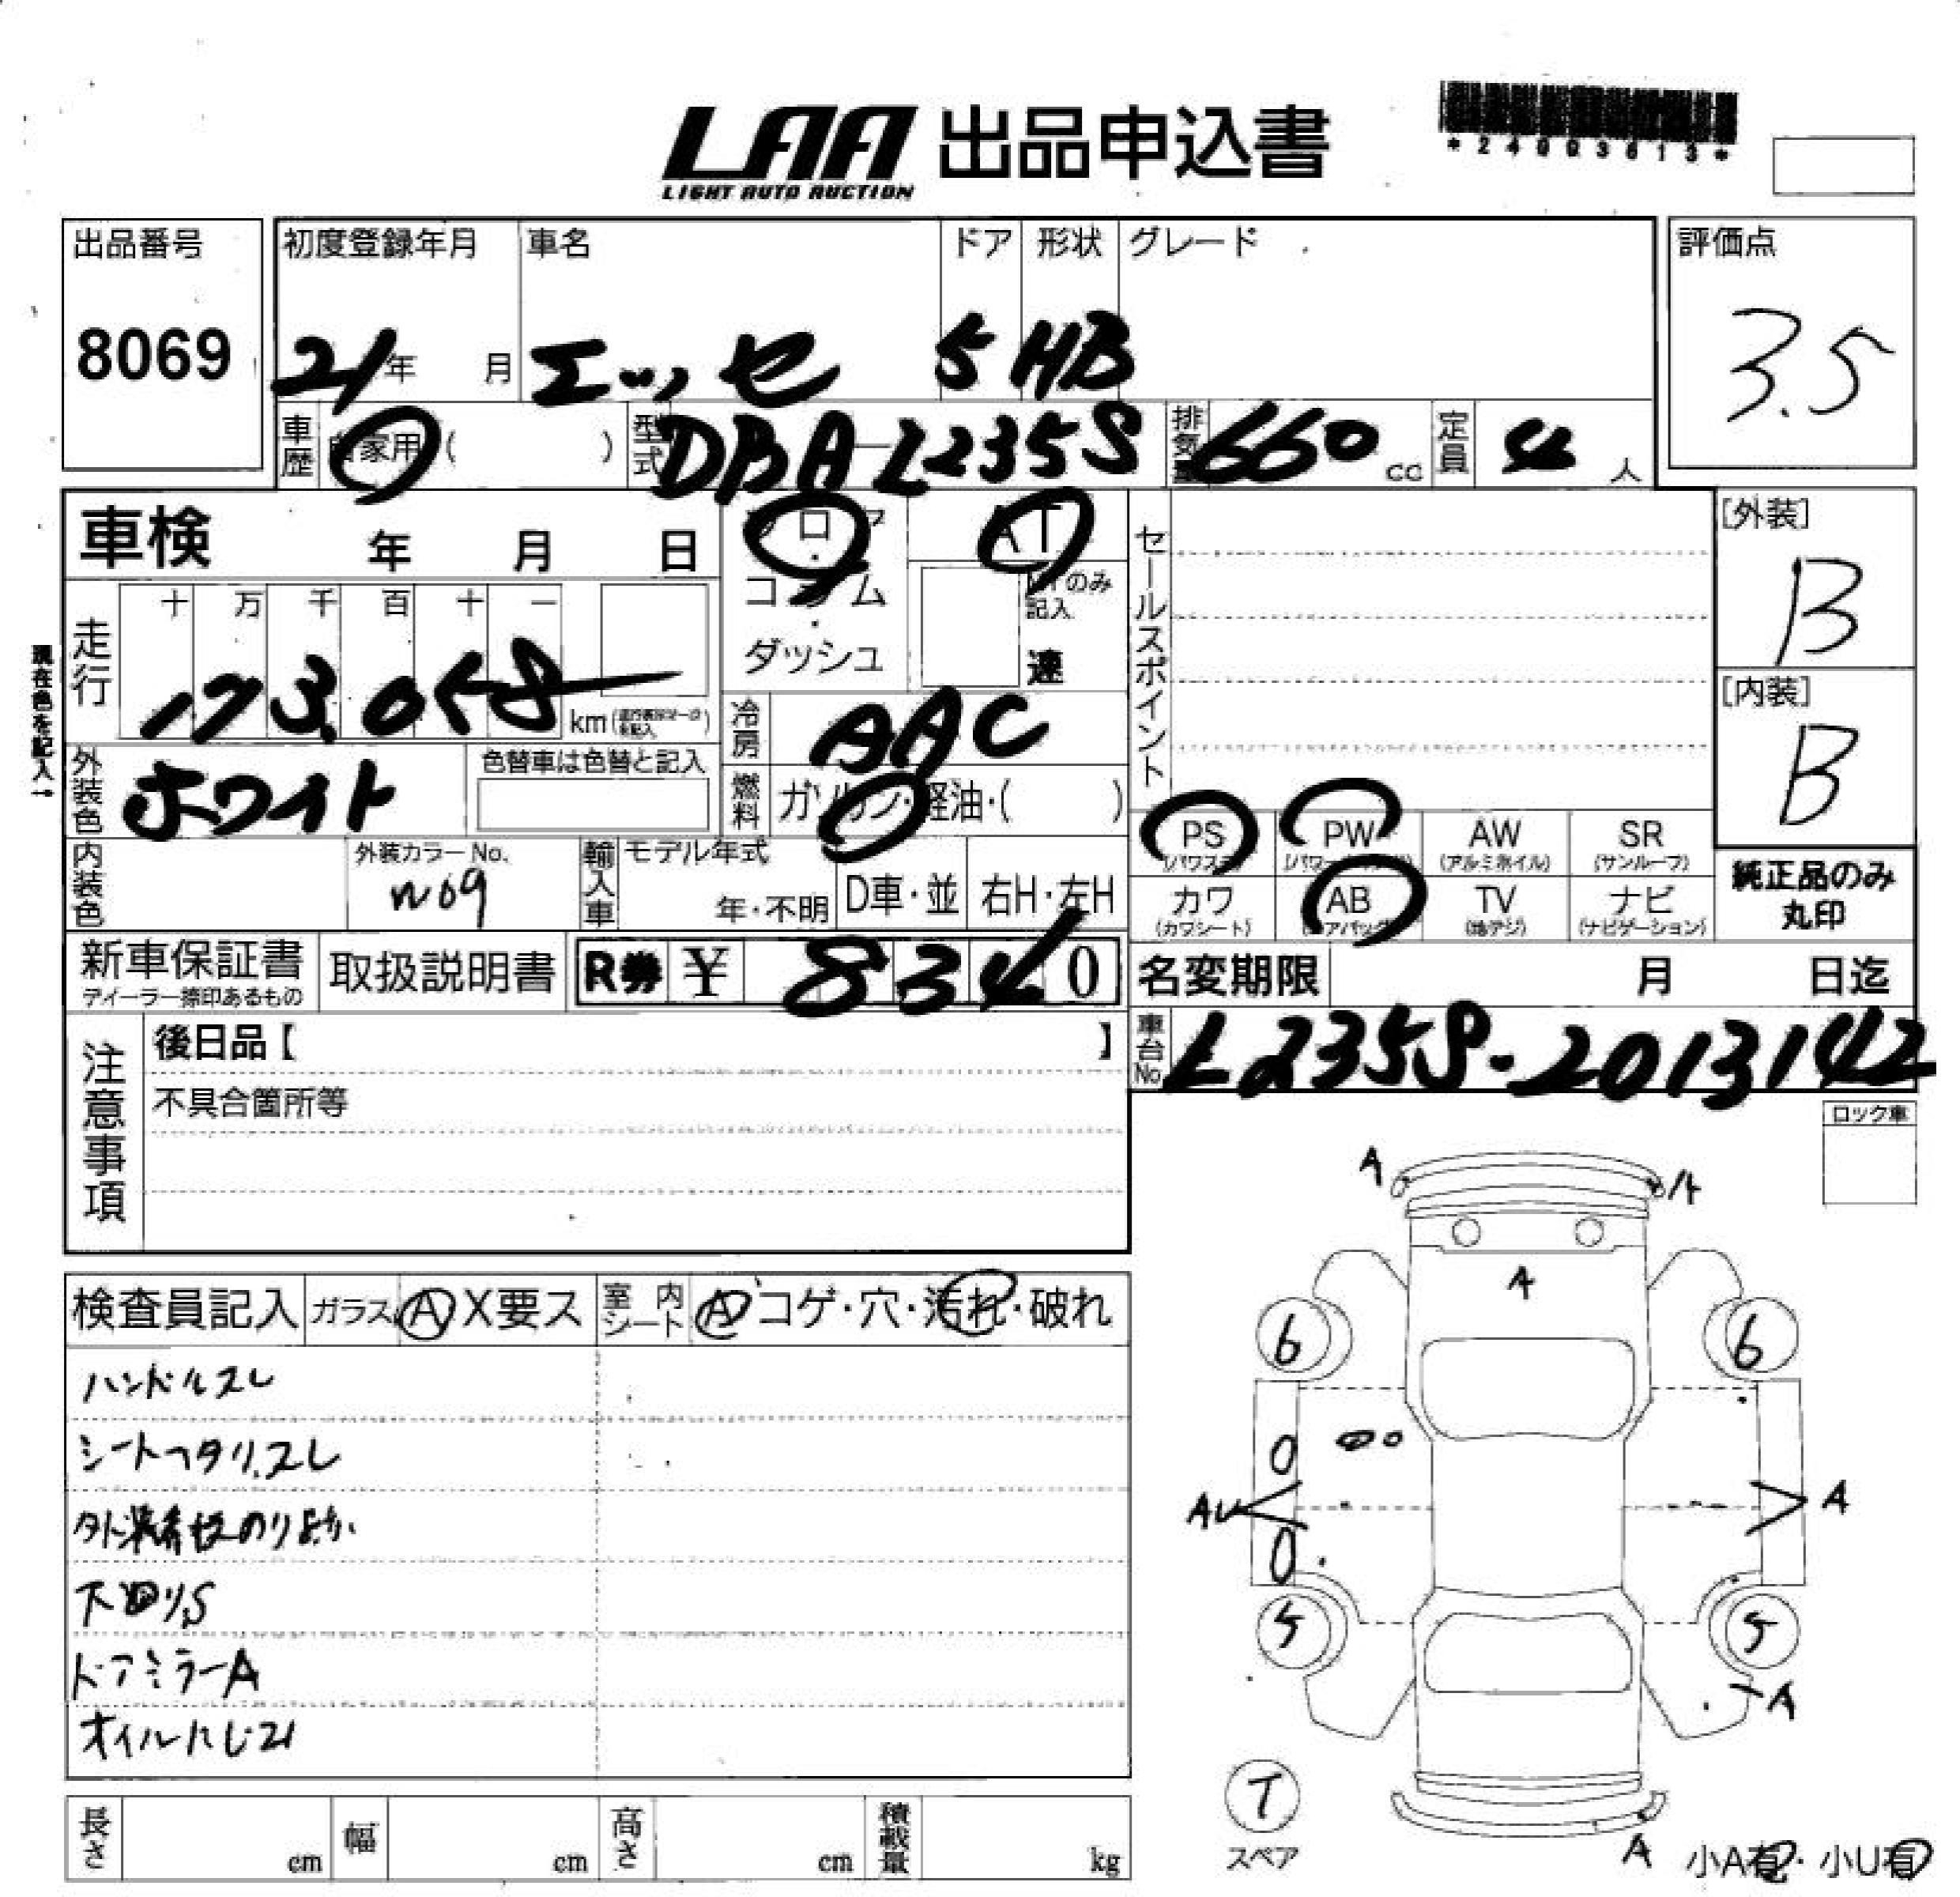 LAA 出品申込書
LIGHT AUTO AUCTION
*24003613*
出品番号 初度登録年月 車名 ドア 形状 グレード 評価点
8069 21年 月 エッセ 5 HB 3.5
車歴 自家用 ( ) 型式 DBA-L235S 排気量 660 cc 定員 4 人
車検 年 月 日 フロア・コラム・ダッシュ AT MTのみ記入 速 セールスポイント [外装] B
走行 十 万 千 百 十 一 [内装] B
173,058 km
現在色を記入→
冷房 AAC
外装色 ホワイト 色替車は色替と記入 燃料 ガソリン・軽油・( )
PS (パワステ) PW AW (アルミホイル) SR (サンルーフ) 純正品のみ丸印
内装色 外装カラーNo. W09 輸入車 モデル年式 年・不明 D車・並 右H・左H
カワ (カワシート) AB (エアバッグ) TV (地デジ) ナビ (ナビゲーション)
新車保証書 ディーラー捺印あるもの 取扱説明書 R券 ¥ 8340 名変期限 月 日迄
注意事項 後日品【 】 車台No. L235S-2013142
不具合箇所等
ロック車
検査員記入 ガラス A X要ス 室内シート A コゲ・穴・汚れ・破れ
ハンドルスレ
シートヘタリ、スレ
下回りS
ドアミラーA
オイルにじみ
A A
A
6 6
0
AU A
0
5 5
A
T
スペア
A 小A有・小U有
長さ cm 幅 cm 高さ cm 積載量 kg